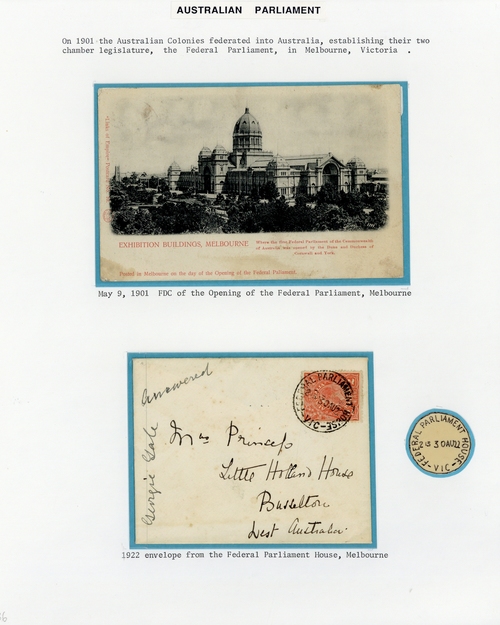 AUSTRALIAN PARLIAMENT
On 1901 the Australian Colonies federated into Australia, establishing their two
chamber legislature, the Federal Parliament, in Melbourne, Victoria .
EXHIBITION BUILDINGS, MELBOURNE
Where the first Federal Parliament of the Commonwealth
of Australia was opened by the Duke and Duchess of
Cornwall and York.
Posted in Melbourne on the day of the Opening of the Federal Parliament.
May 9, 1901 FDC of the Opening of the Federal Parliament, Melbourne
Answered
Georgie Gale
FEDERAL PARLIAMENT HOUSE-VIC-
Mrs Princep
Little Holland House
Busselton
West Australia.
FEDERAL PARLIAMENT HOUSE
30AU22
-VIC-
1922 envelope from the Federal Parliament House, Melbourne